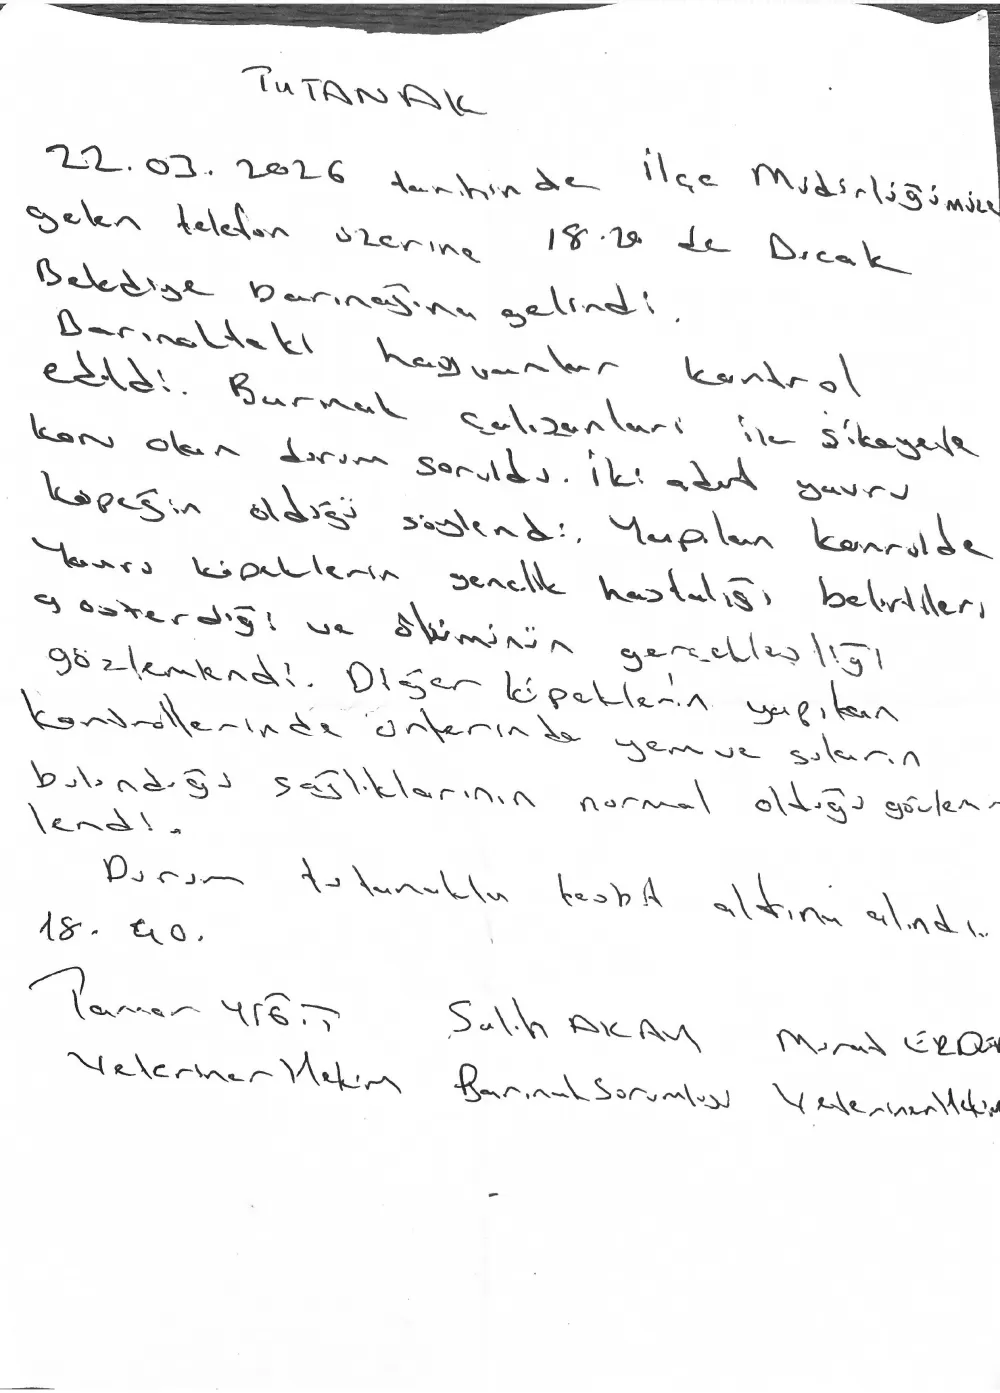 TUTANAK
22.03.2026 tarihinde ilçe Müdürlüğümüze
gelen telefon üzerine 18.20 de Dicak
Belediye barınağına gelindi.
Barınaktaki hayvanlar kontrol
edildi. Barınak çalışanları ile şikayete
konu olan durum soruldu. İki adet yavru
köpeğin öldüğü söylendi. Yapılan kontrolde
Yavru köpeklerin gençlik hastalığı belirtileri
gösterdiği ve ölümünün gerçekleştiği
gözlemlendi. Diğer köpeklerin yapılan
kontrollerinde önlerinde yem ve suların
bulunduğu sağlıklarının normal olduğu gözlem
lendi.
Durum tutanakla tesbit altına alındı.
18.40.
Tamer YİĞİT Salih AKAY Murat
Veteriner Hekim Barınak Sorumlusu Veteriner Hekim